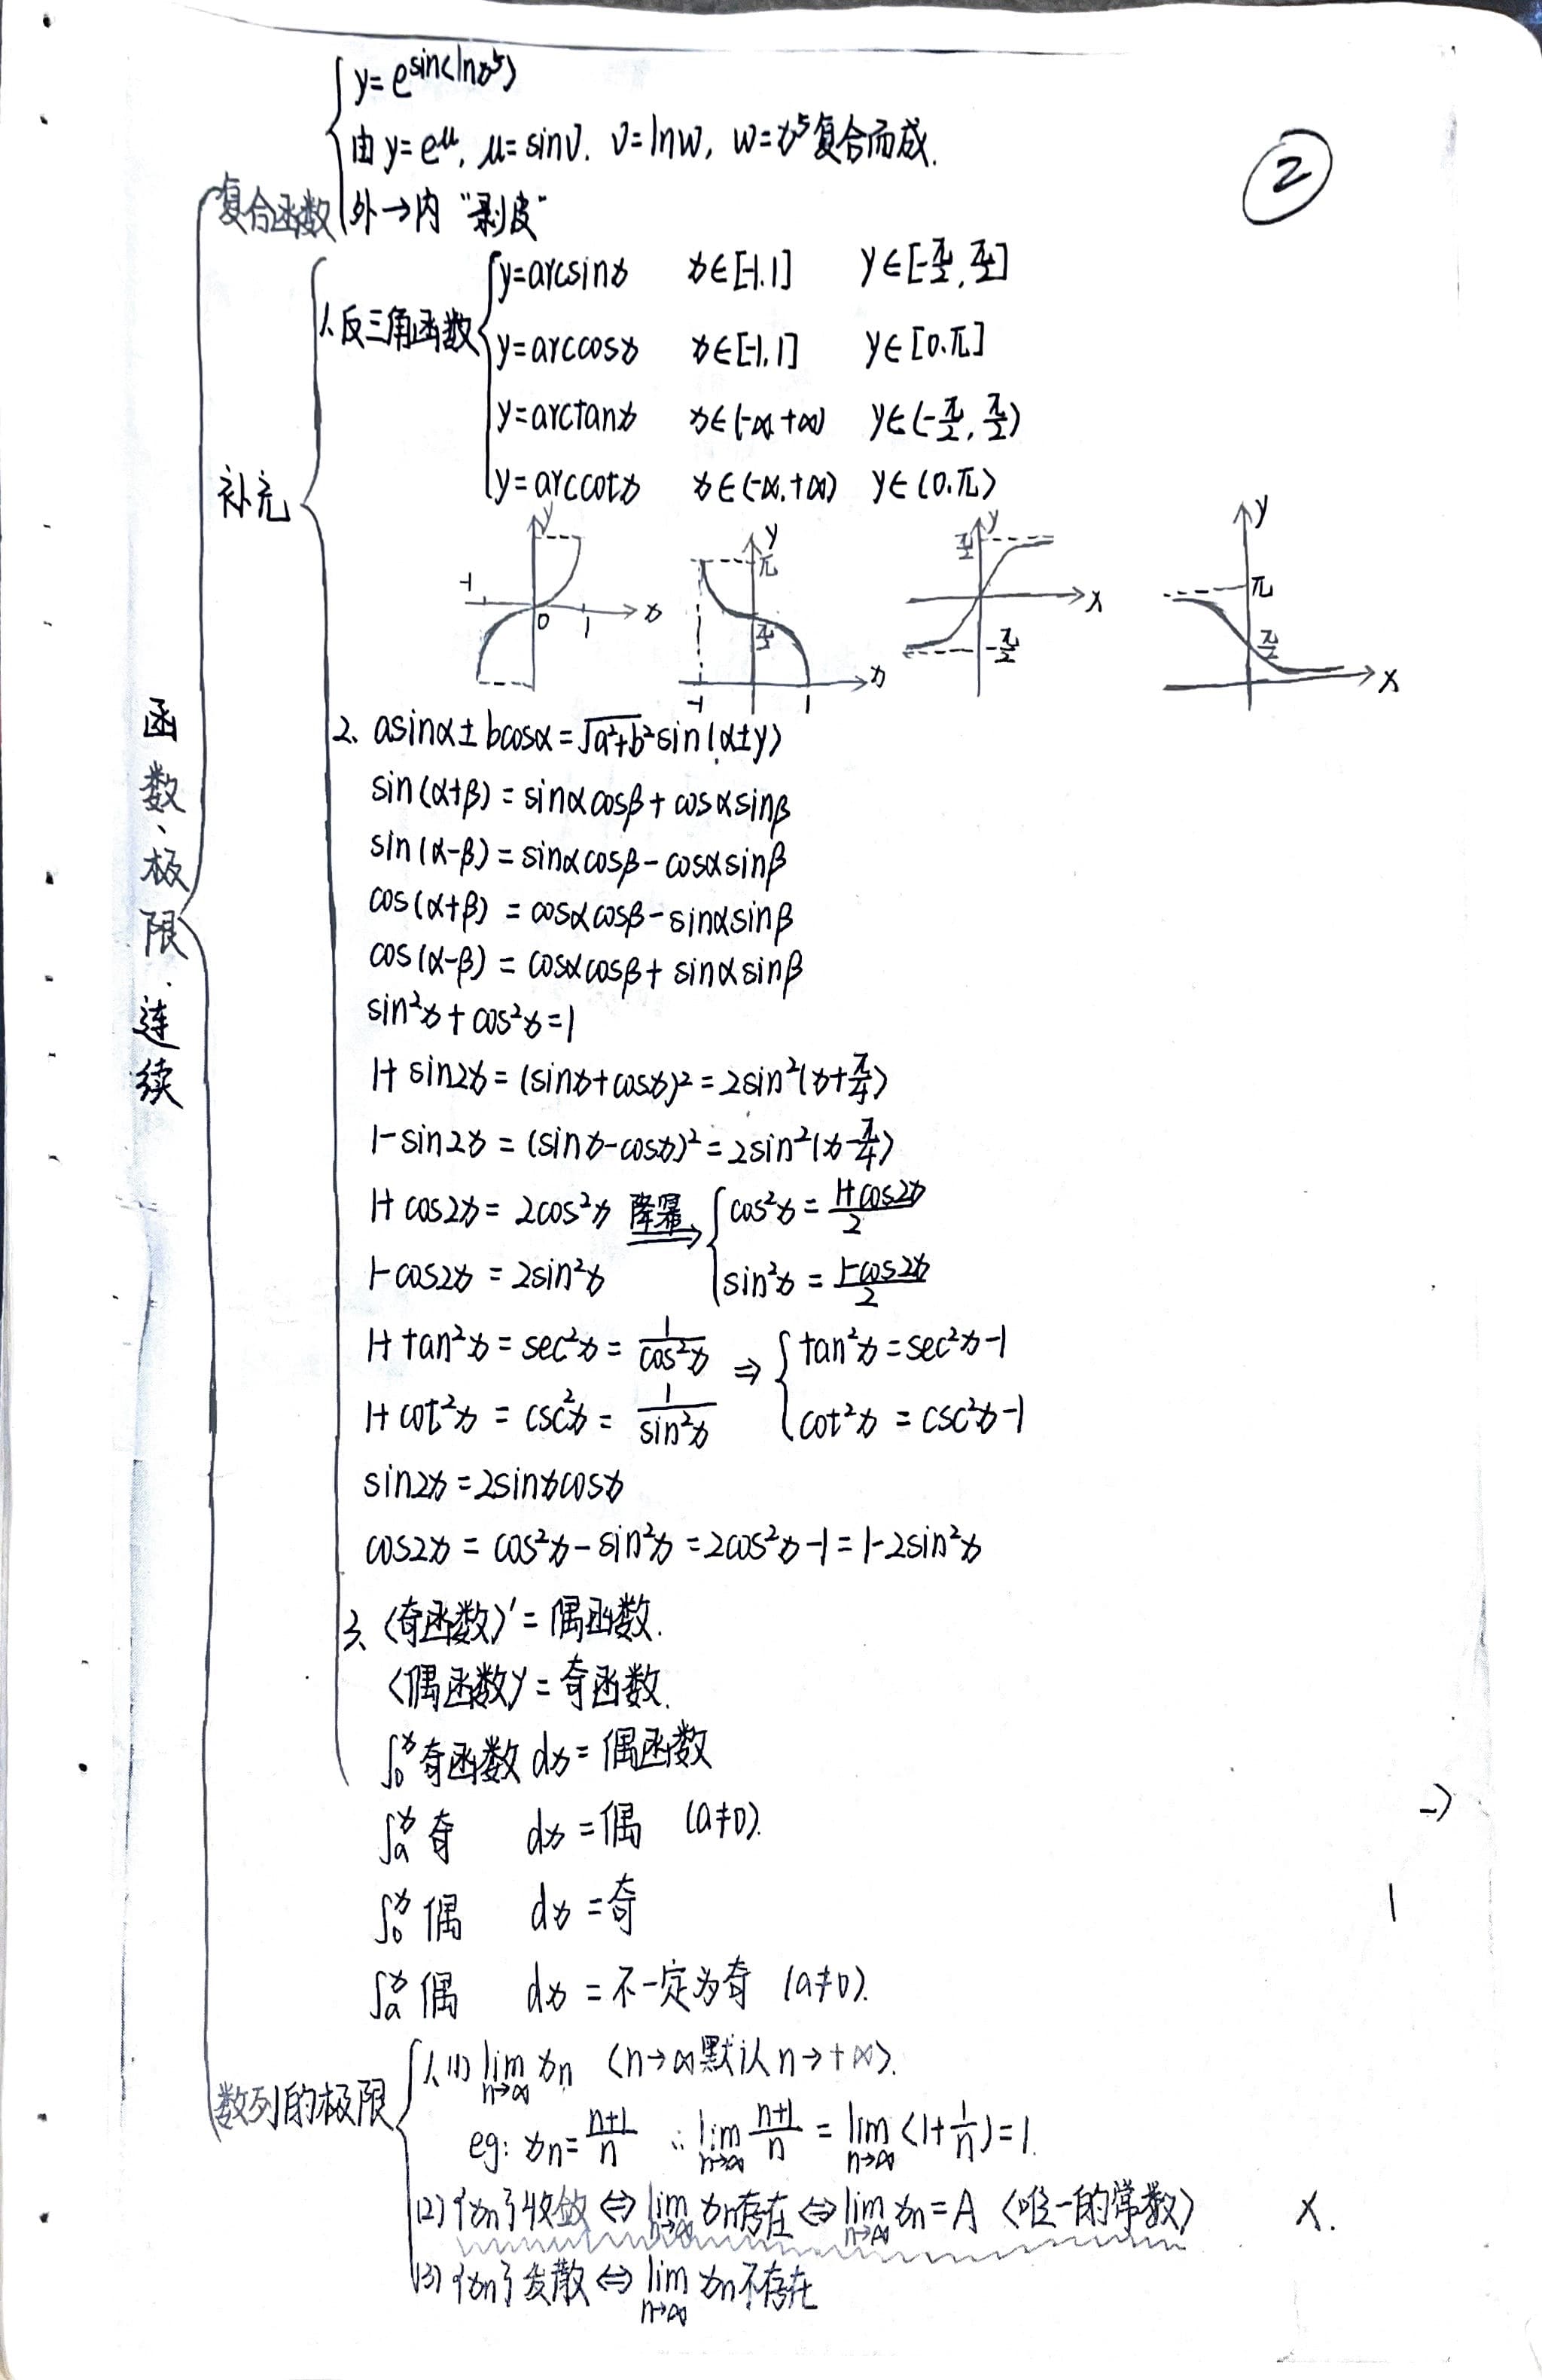 ②
函数、极限、连续
y=e^sin(lnx⁵)
由 y=e^μ, μ=sinv. v=lnw, w=x⁵复合而成.
复合函数
外→内 "剥皮"
补充
1.反三角函数
y=arcsinx x∈[-1.1] y∈[-π/2, π/2]
y=arccosx x∈[-1,1] y∈[0.π]
y=arctanx x∈(-∞,+∞) y∈(-π/2, π/2)
y=arccotx x∈(-∞,+∞) y∈(0.π)
-1 0 1 x y
-1 1 π π/2 x y
π/2 -π/2 x y
π π/2 x y
2. asinα±bcosα=√(a²+b²)sin(α±y)
sin(α+β)=sinαcosβ+cosαsinβ
sin(α-β)=sinαcosβ-cosαsinβ
cos(α+β)=cosαcosβ-sinαsinβ
cos(α-β)=cosαcosβ+sinαsinβ
sin²x+cos²x=1
1+sin2x=(sinx+cosx)²=2sin²(x+π/4)
1-sin2x=(sinx-cosx)²=2sin²(x-π/4)
1+cos2x=2cos²x 降幂→ cos²x=(1+cos2x)/2
1-cos2x=2sin²x sin²x=(1-cos2x)/2
1+tan²x=sec²x=1/cos²x ⇒ tan²x=sec²x-1
1+cot²x=csc²x=1/sin²x cot²x=csc²x-1
sin2x=2sinxcosx
cos2x=cos²x-sin²x=2cos²x-1=1-2sin²x
3.(奇函数)'=偶函数.
(偶函数)'=奇函数.
∫₀ˣ奇函数 dx=偶函数
∫ₐˣ奇 dx=偶 (a≠0).
∫₀ˣ偶 dx=奇
∫ₐˣ偶 dx=不一定为奇 (a≠0).
数列的极限
1.(1) lim n→∞ xn (n→∞默认n→+∞).
eg: xn=(n+1)/n ∴ lim n→∞ (n+1)/n = lim n→∞ (1+1/n)=1.
(2){xn}收敛⇔lim n→∞ xn存在⇔lim n→∞ xn=A (唯一的常数)
(3){xn}发散⇔lim n→∞ xn不存在